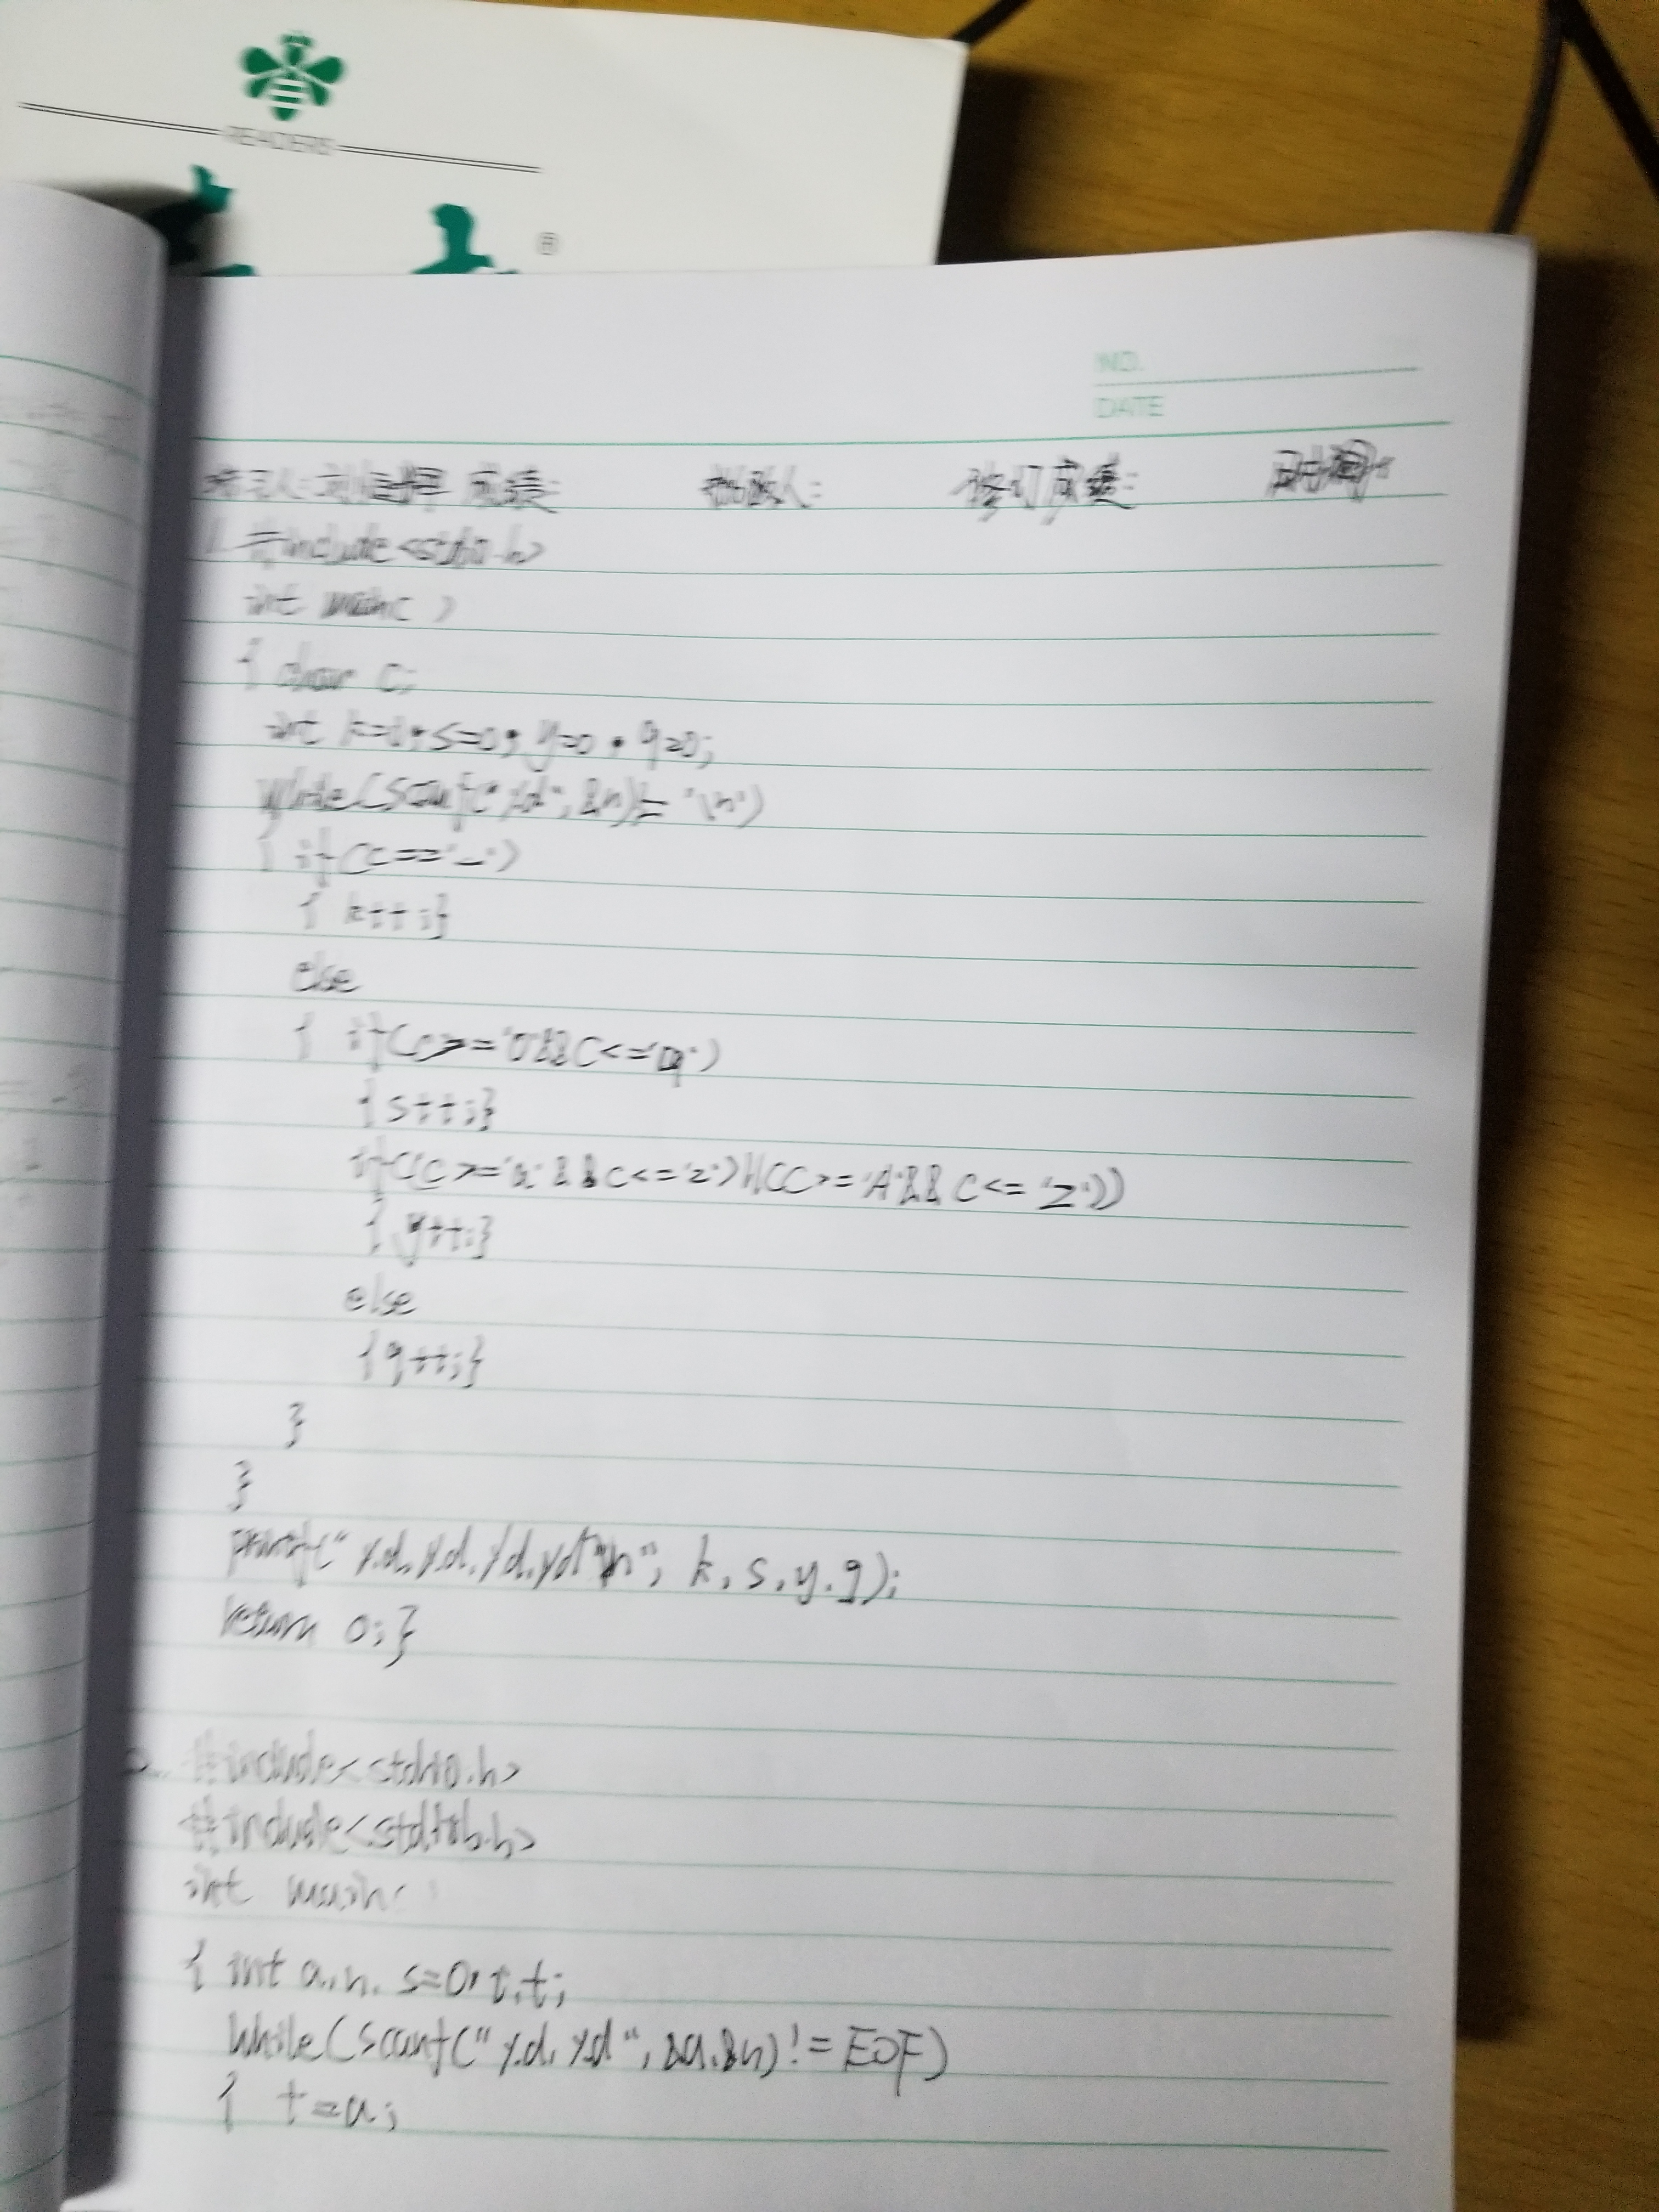 READERS
®
NO.
DATE
成绩: 批改人: 修订成绩: 时间:
1. #include<stdio.h>
int main( )
{ char c;
int k=0,s=0,y=0,q=0;
while(scanf("%d",&n)!='\n')
{ if(c==' ')
{ k++;}
else
{ if(c>='0'&&c<='9')
{s++;}
if((c>='a'&&c<='z')||(c>='A'&&c<='Z'))
{ y++;}
else
{q++;}
}
}
printf("%d,%d,%d,%d\n", k,s,y,q);
return 0;}
#include<stdio.h>
#include<stdlib.h>
int main(
{ int a,n, s=0,i,t;
while(scanf("%d,%d",&a,&n)!=EOF)
{ t=a;